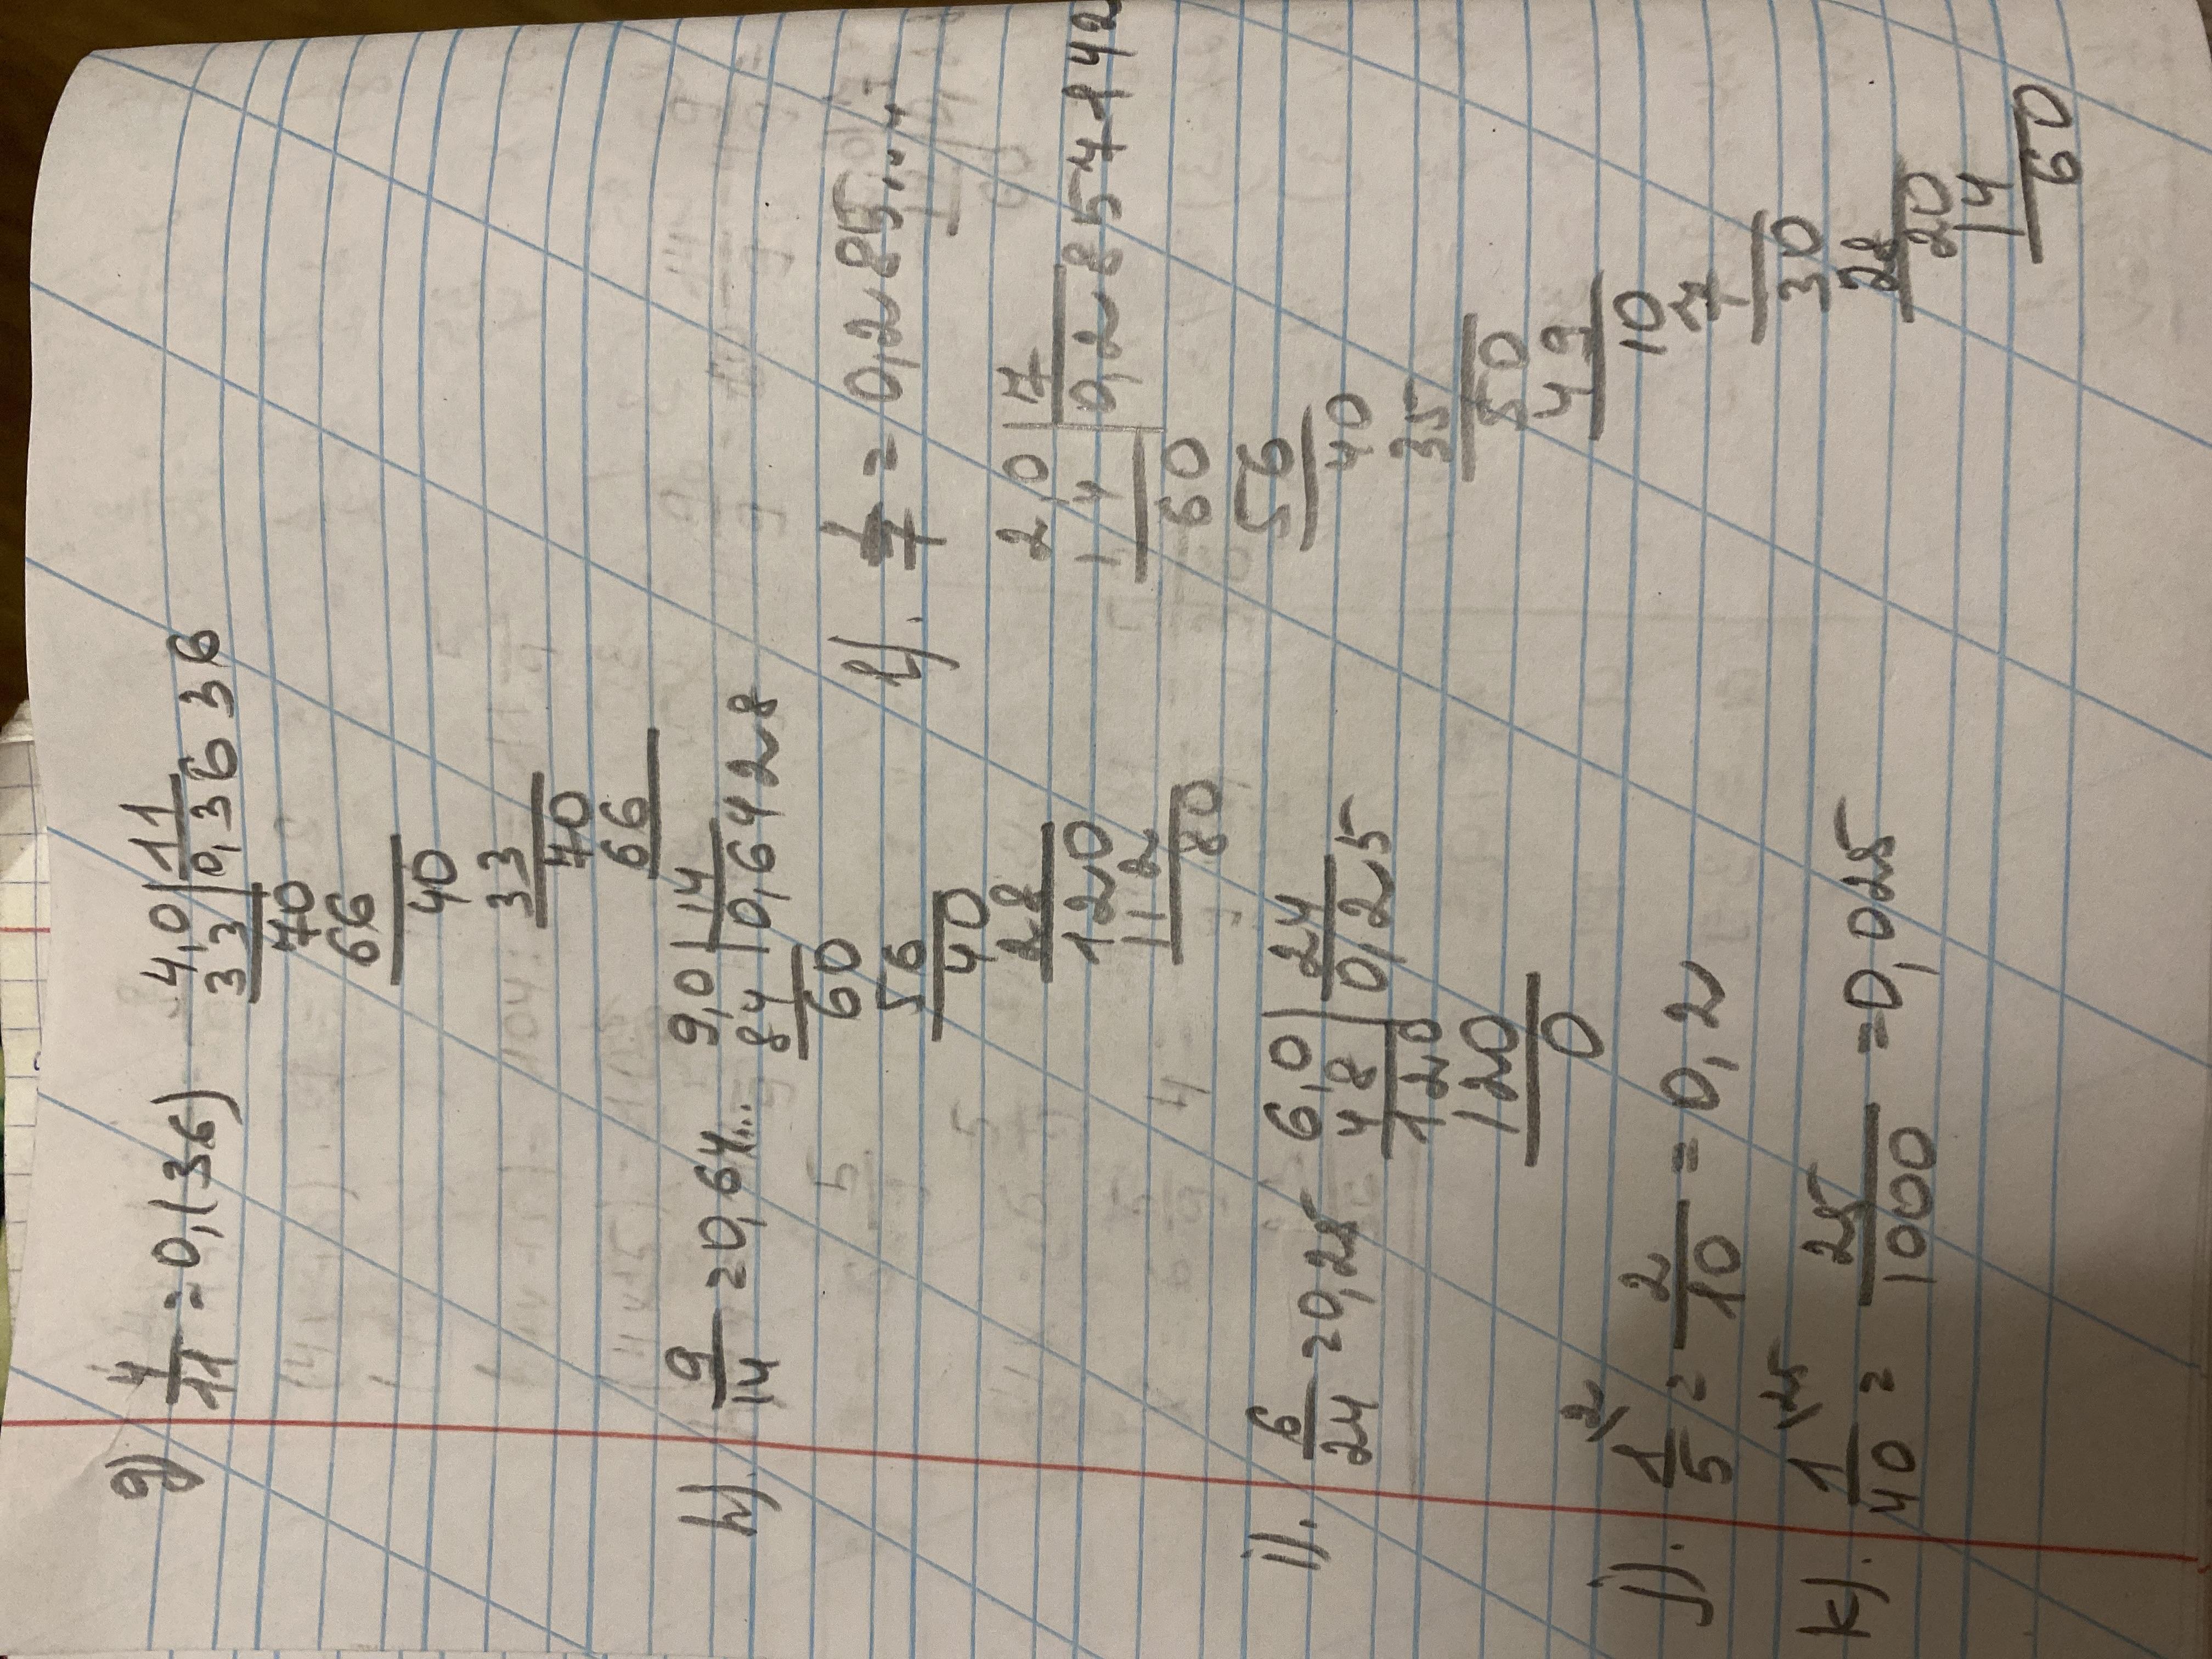 g) 4/11 = 0,(36)
4,0 | 11
33 | 0,3636
70
66
40
33
70
66
h). 9/14 = 0,64...
9,0 | 14
84 | 0,6428
60
56
40
28
120
112
80
i). 6/24 = 0,25
6,0 | 24
48 | 0,25
120
120
0
j). 1/5 \2 = 2/10 = 0,2
k). 1/40 \25 = 25/1000 = 0,025
l). /7 = 0,285...
2,0 | 7
14 | 0,2857142
60
56
40
35
50
49
10
7
30
28
20
14
60